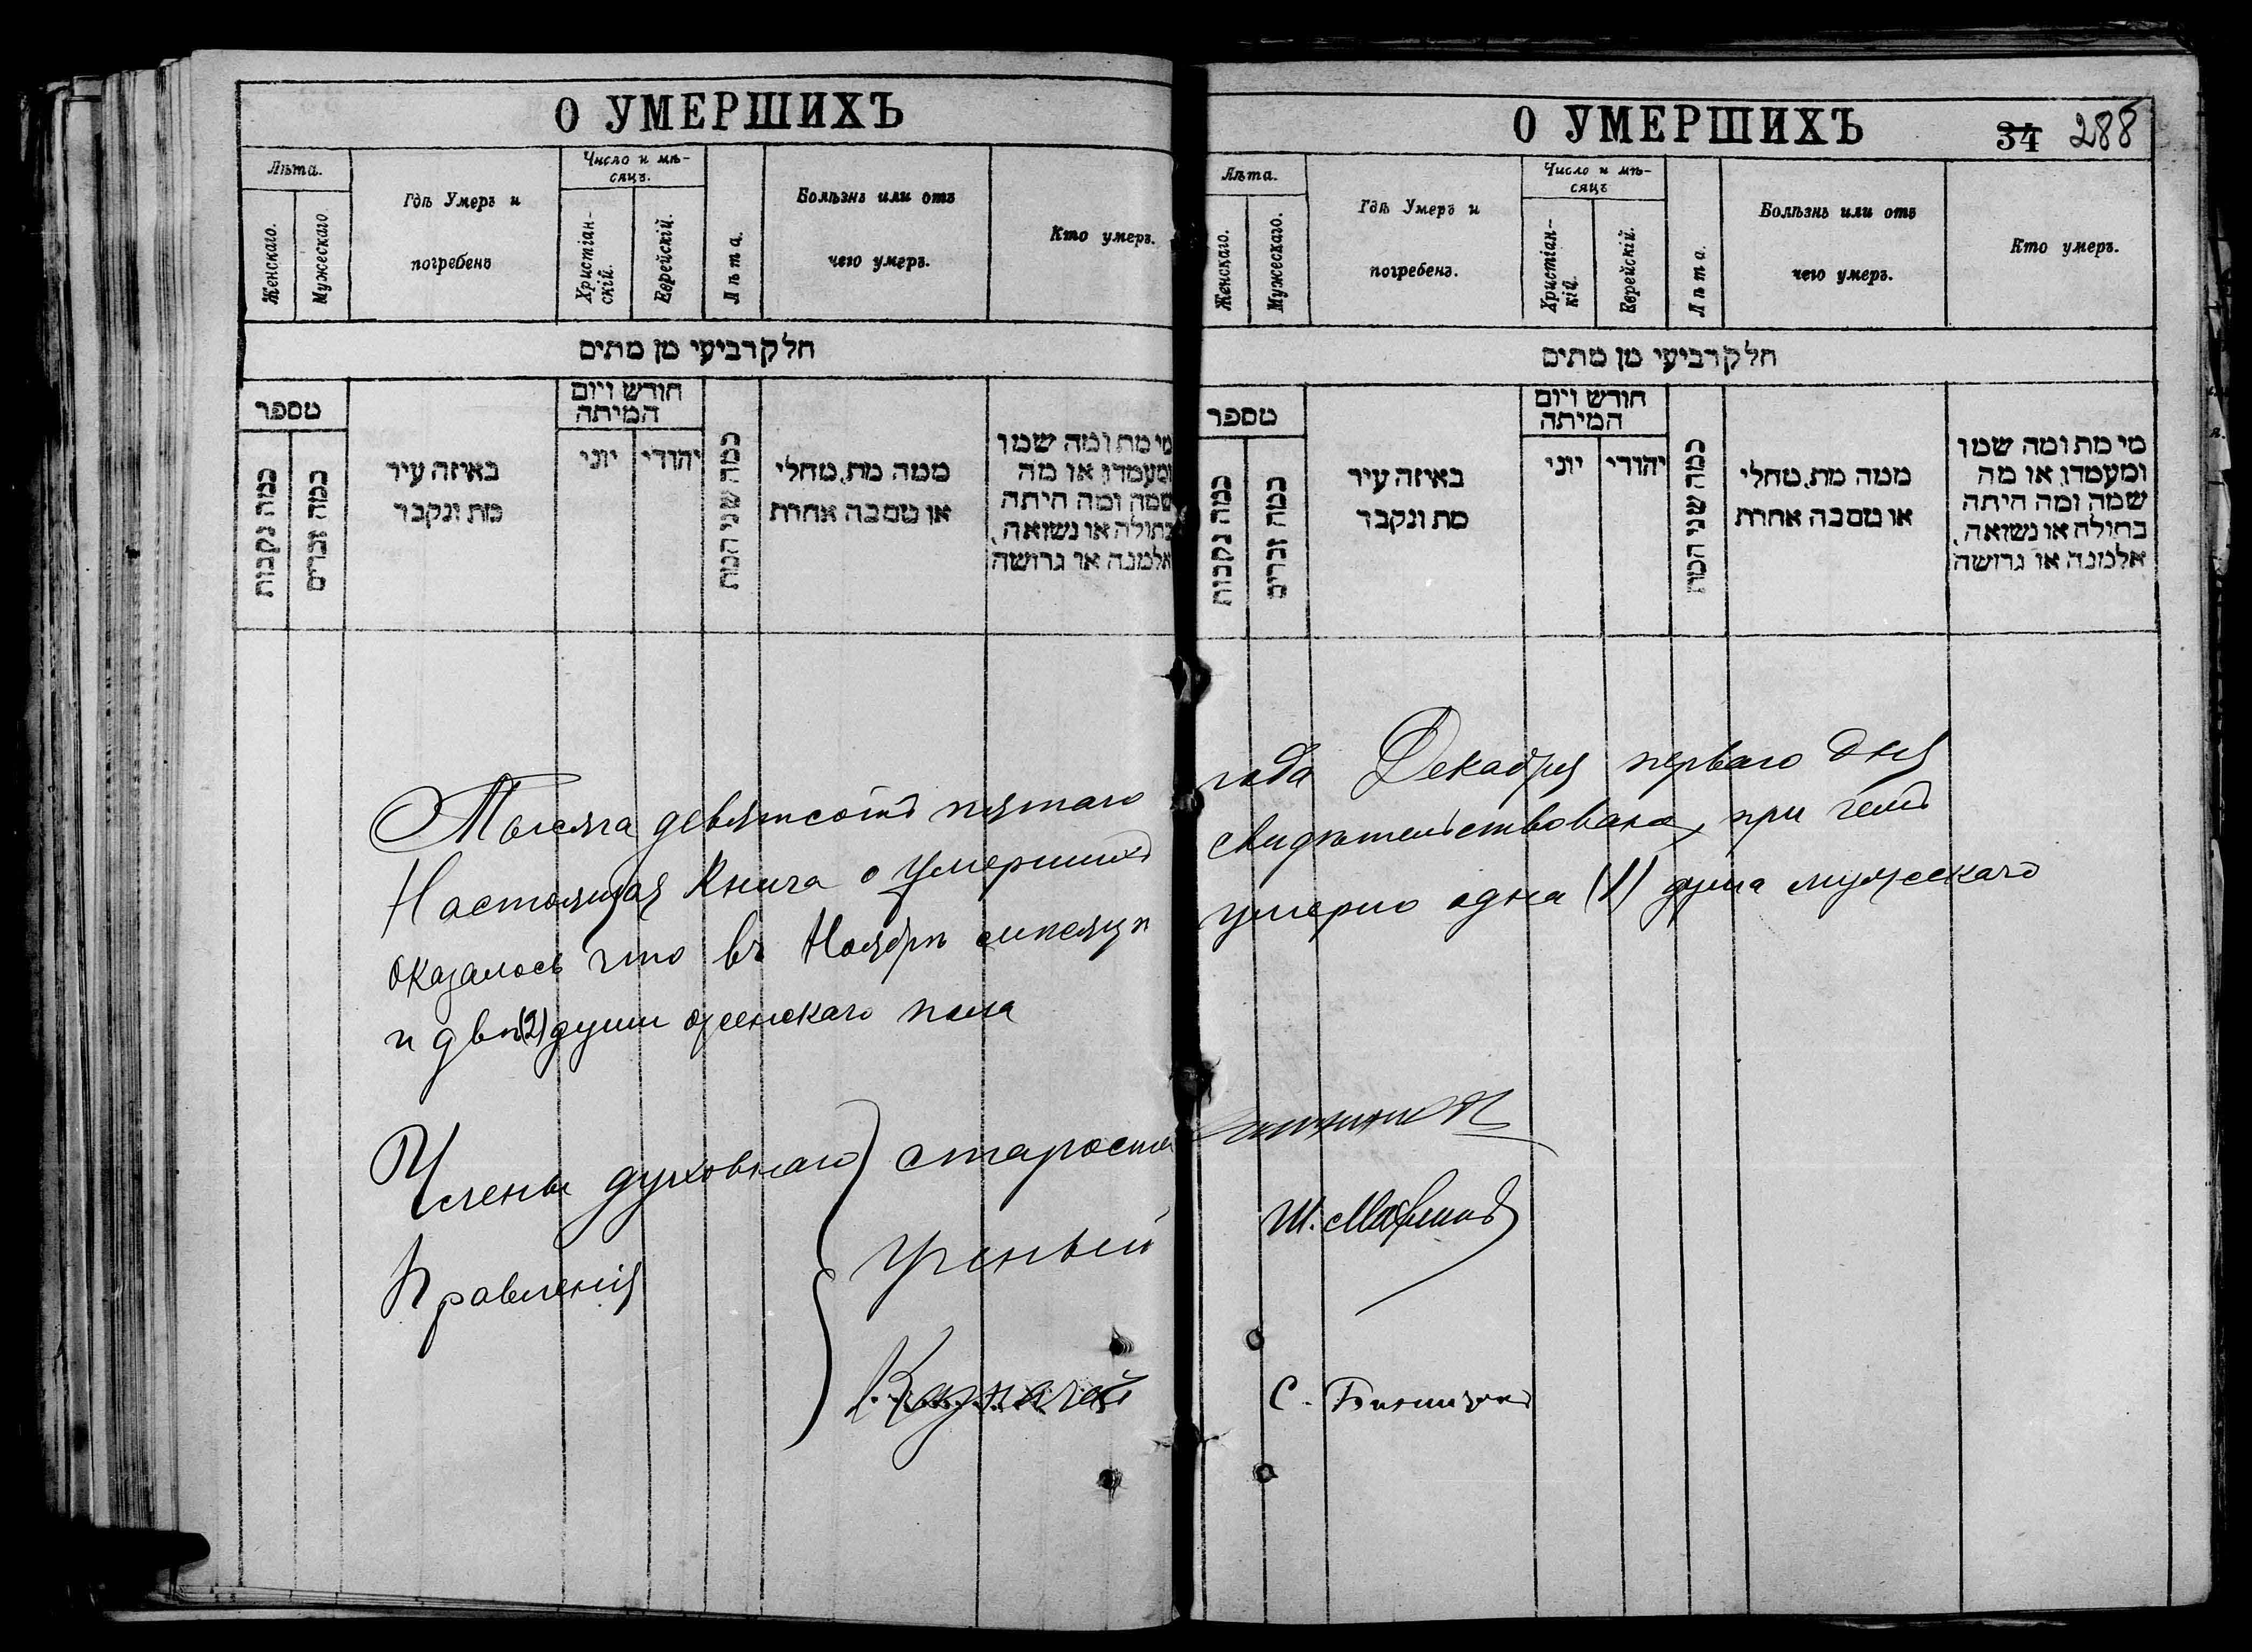 О УМЕРШИХЪ
Лѣта.
Женскаго.
Мужескаго.
Гдѣ Умеръ и
погребенъ
Число и мѣ-
сяцъ.
Христіан-
скій.
Еврейскій.
Лѣта.
Болѣзнь или отъ
чего умеръ.
Кто умеръ.
חלק רביעי מן מתים
מספר
כמה נקבות
כמה זכרים
באיזה עיר
מת ונקבר
חודש ויום
המיתה
יוני
יהודי
כמה שני המת
ממה מת, מחלי
או מסבה אחרת
מי מת ומה שמו
ומעמדו, או מה
שמה ומה היתה
בתולה או נשואה,
אלמנה או גרושה
Тысяча девятсотъ пятаго
Настоящая Книга о умершихъ
оказалось что въ Ноябрѣ мѣсяцѣ
и двѣ (2) души женскаго пола
Члены духовнаго
Правленія
староста
Ученый
Казначей
О УМЕРШИХЪ
34 288
Лѣта.
Женскаго.
Мужескаго.
Гдѣ Умеръ и
погребенъ.
Число и мѣ-
сяцъ
Христіан-
кій.
Еврейскій.
Лѣта.
Болѣзнь или отъ
чего умеръ.
Кто умеръ.
חלק רביעי מן מתים
מספר
כמה נקבות
כמה זכרים
באיזה עיר
מת ונקבר
חודש ויום
המיתה
יוני
יהודי
כמה שני המת
ממה מת, מחלי
או מסבה אחרת
מי מת ומה שמו
ומעמדו, או מה
שמה ומה היתה
בתולה או נשואה,
אלמנה או גרושה
года Декабря перваго дня
свидѣтельствована, при чемъ
умерло одна (1) душа мужескаго
Ш.
С.